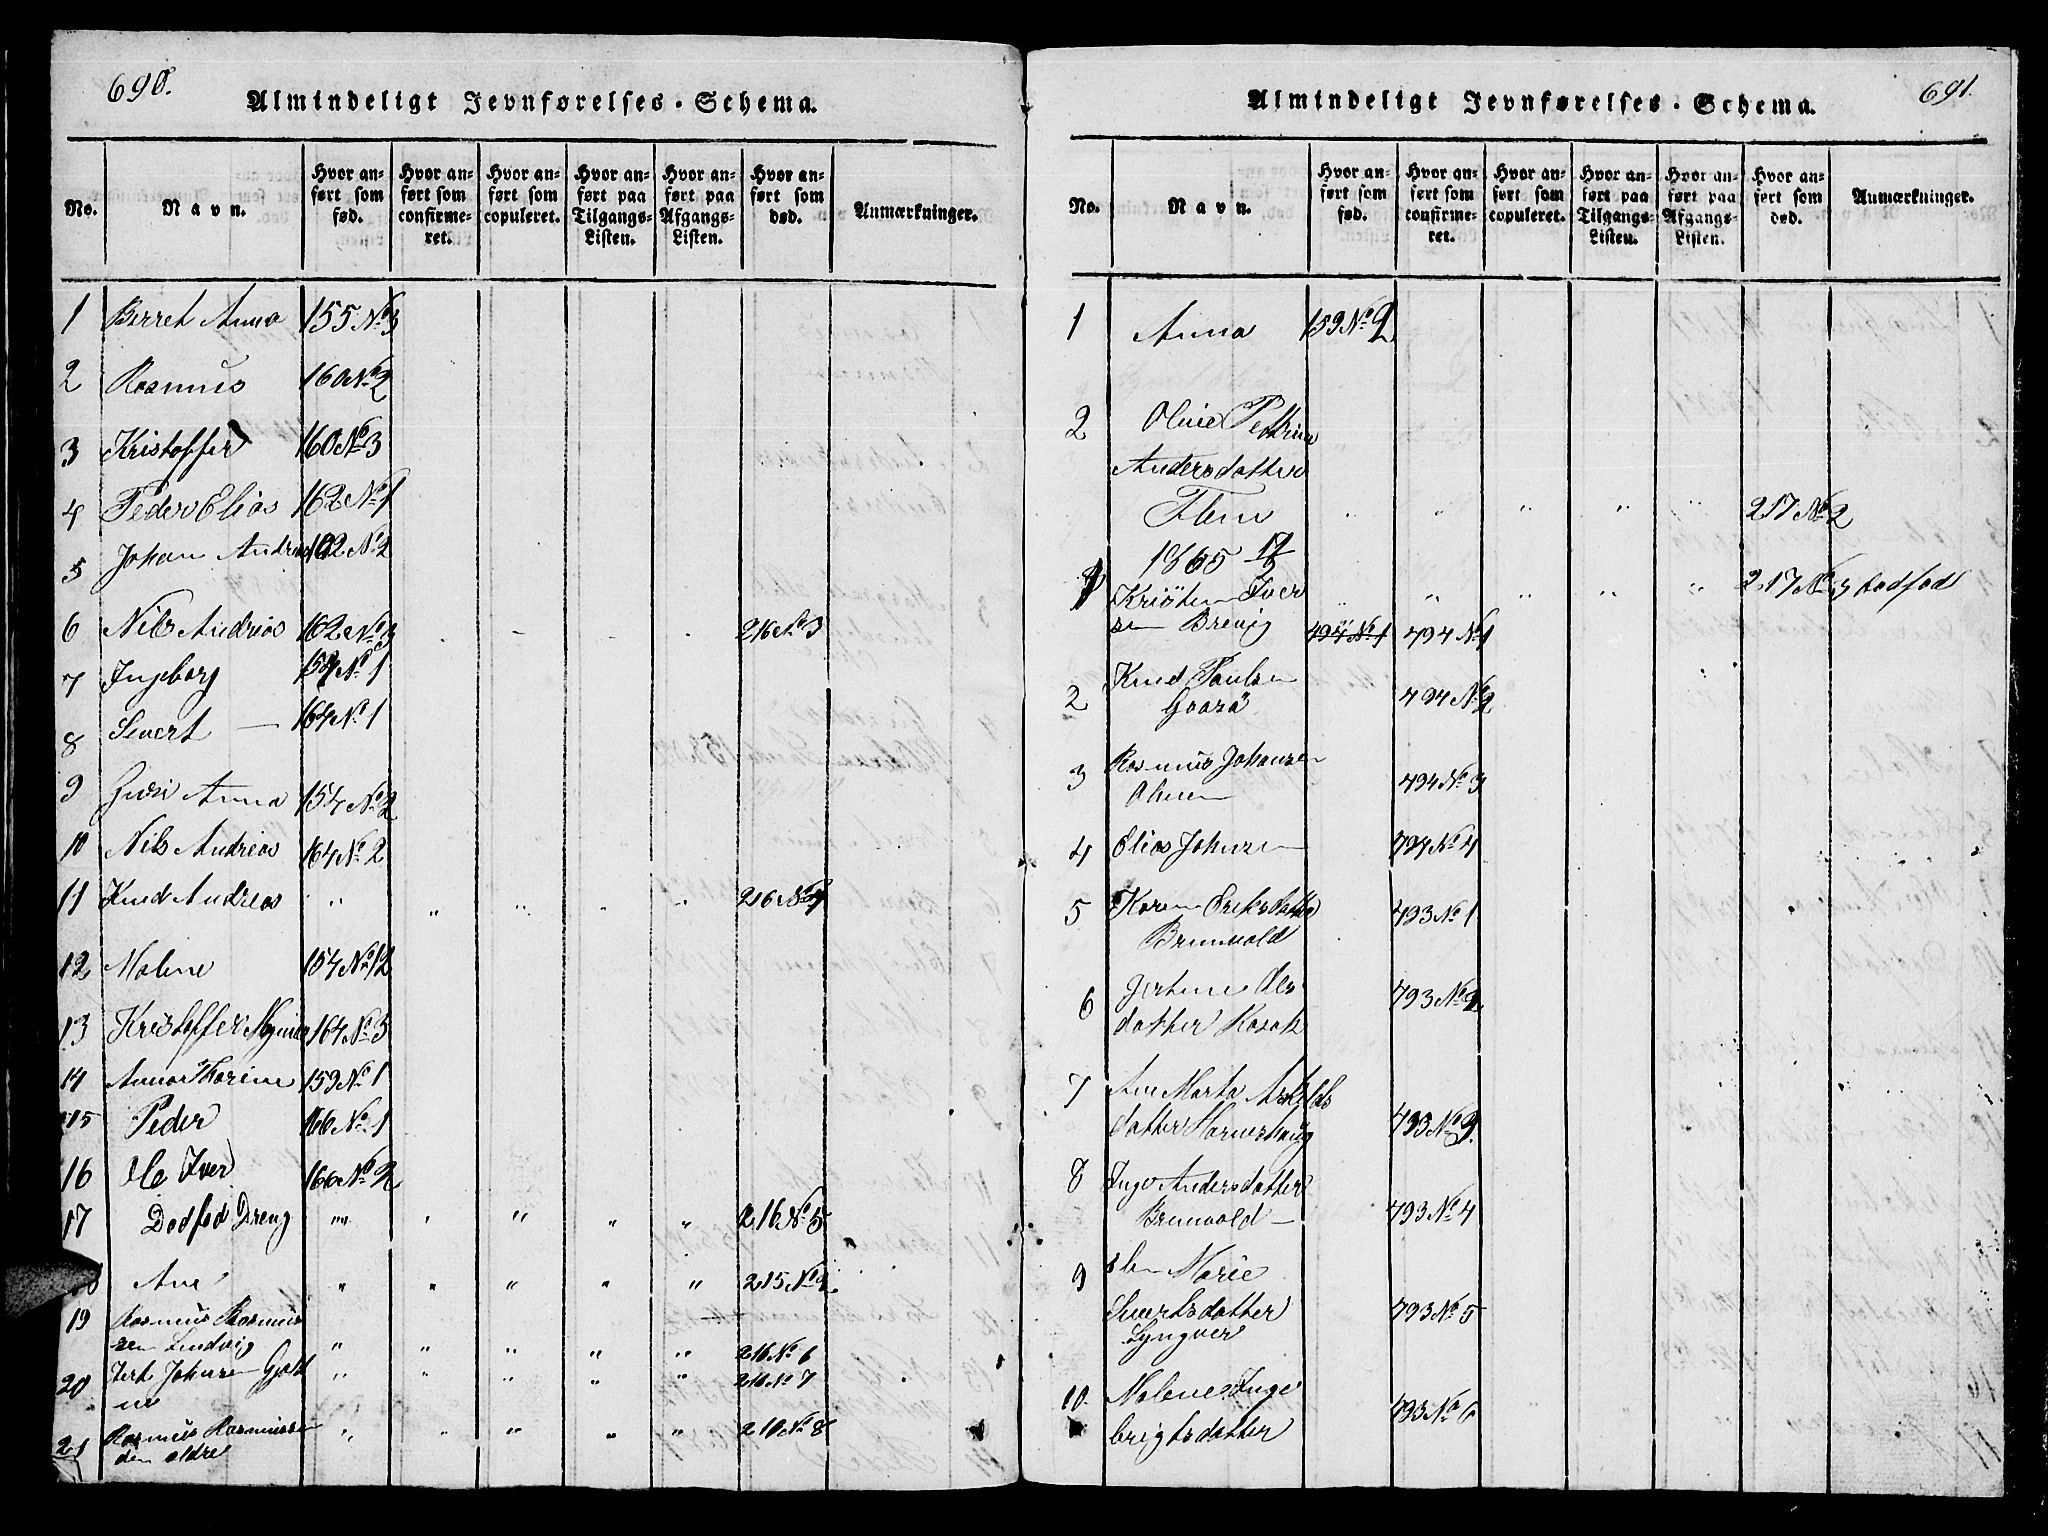 690.
Almindeligt Jevnførelses-Schema.
No. Navn. Hvor anført som fød. Hvor anført som confirmeret. Hvor anført som copuleret. Hvor anført paa Tilgangs-Listen. Hvor anført paa Afgangs-Listen. Hvor anført som død. Anmærkninger.
1 Berret Anna 155 No 3
2 Rasmus 160 No 2
3 Kristoffer 160 No 3
4 Peder Elias 162 No 1
5 Johan Andreas 162 No 2
6 Nils Andreas 162 No 3 216 No 3
7 Ingeborg No 1
8 Sivert — 164 No 1
9 Guri Anna 154 No 2
10 Nils Andreas 164 No 2
11 Knud Andreas " " " " " 216 No 4
12 Malene 154 No 12
13 Kristoffer 164 No 3
14 Anna Karine 159 No 1
15 Peder 166 No 1
16 Ole Iver 166 No 2
17 Dødfød Dreng " " " " " 216 No 5
Ane " " " " " 215 No
19 Rasmus Rasmus
sen Lindvig " " " " " 216 No 6
20 Johnsen " " " " " 216 No 7
21 Rasmus Rasmussen " " " " " 216 No 8
den eldre
691.
Almindeligt Jevnførelses-Schema.
No. Navn. Hvor anført som fød. Hvor anført som confirmeret. Hvor anført som copuleret. Hvor anført paa Tilgangs-Listen. Hvor anført paa Afgangs-Listen. Hvor anført som død. Anmærkninger.
1 Anna 159 No 2
2 Oline Pettrine
Andersdatter
Flem " " " " " 217 No 2
1865 17/
" " " " " 217 No 3 dødfødt
1 Kristen Iver
sen Brevig 494 No 1 494 No 1
2 Knud Paulsen
Gaasø 494 No 2
3 Rasmus Johansen
494 No 3
4 Elias Johnsen 494 No 4
5 Karen Eriksdatter 493 No 1
Brunvold
6 Jertine Ols 493 No 2
datter
7 Ane Marta
datter 493 No 3
8 Inger Andersdatter
Brunvold — 493 No 4
9 Marie
Sivertsdatter 493 No 5
Lyngver
10 Malene Inge
brigtsdatter 493 No 6